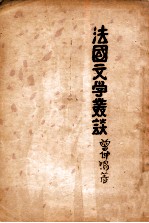 法國文學叢談
曾仲鳴著